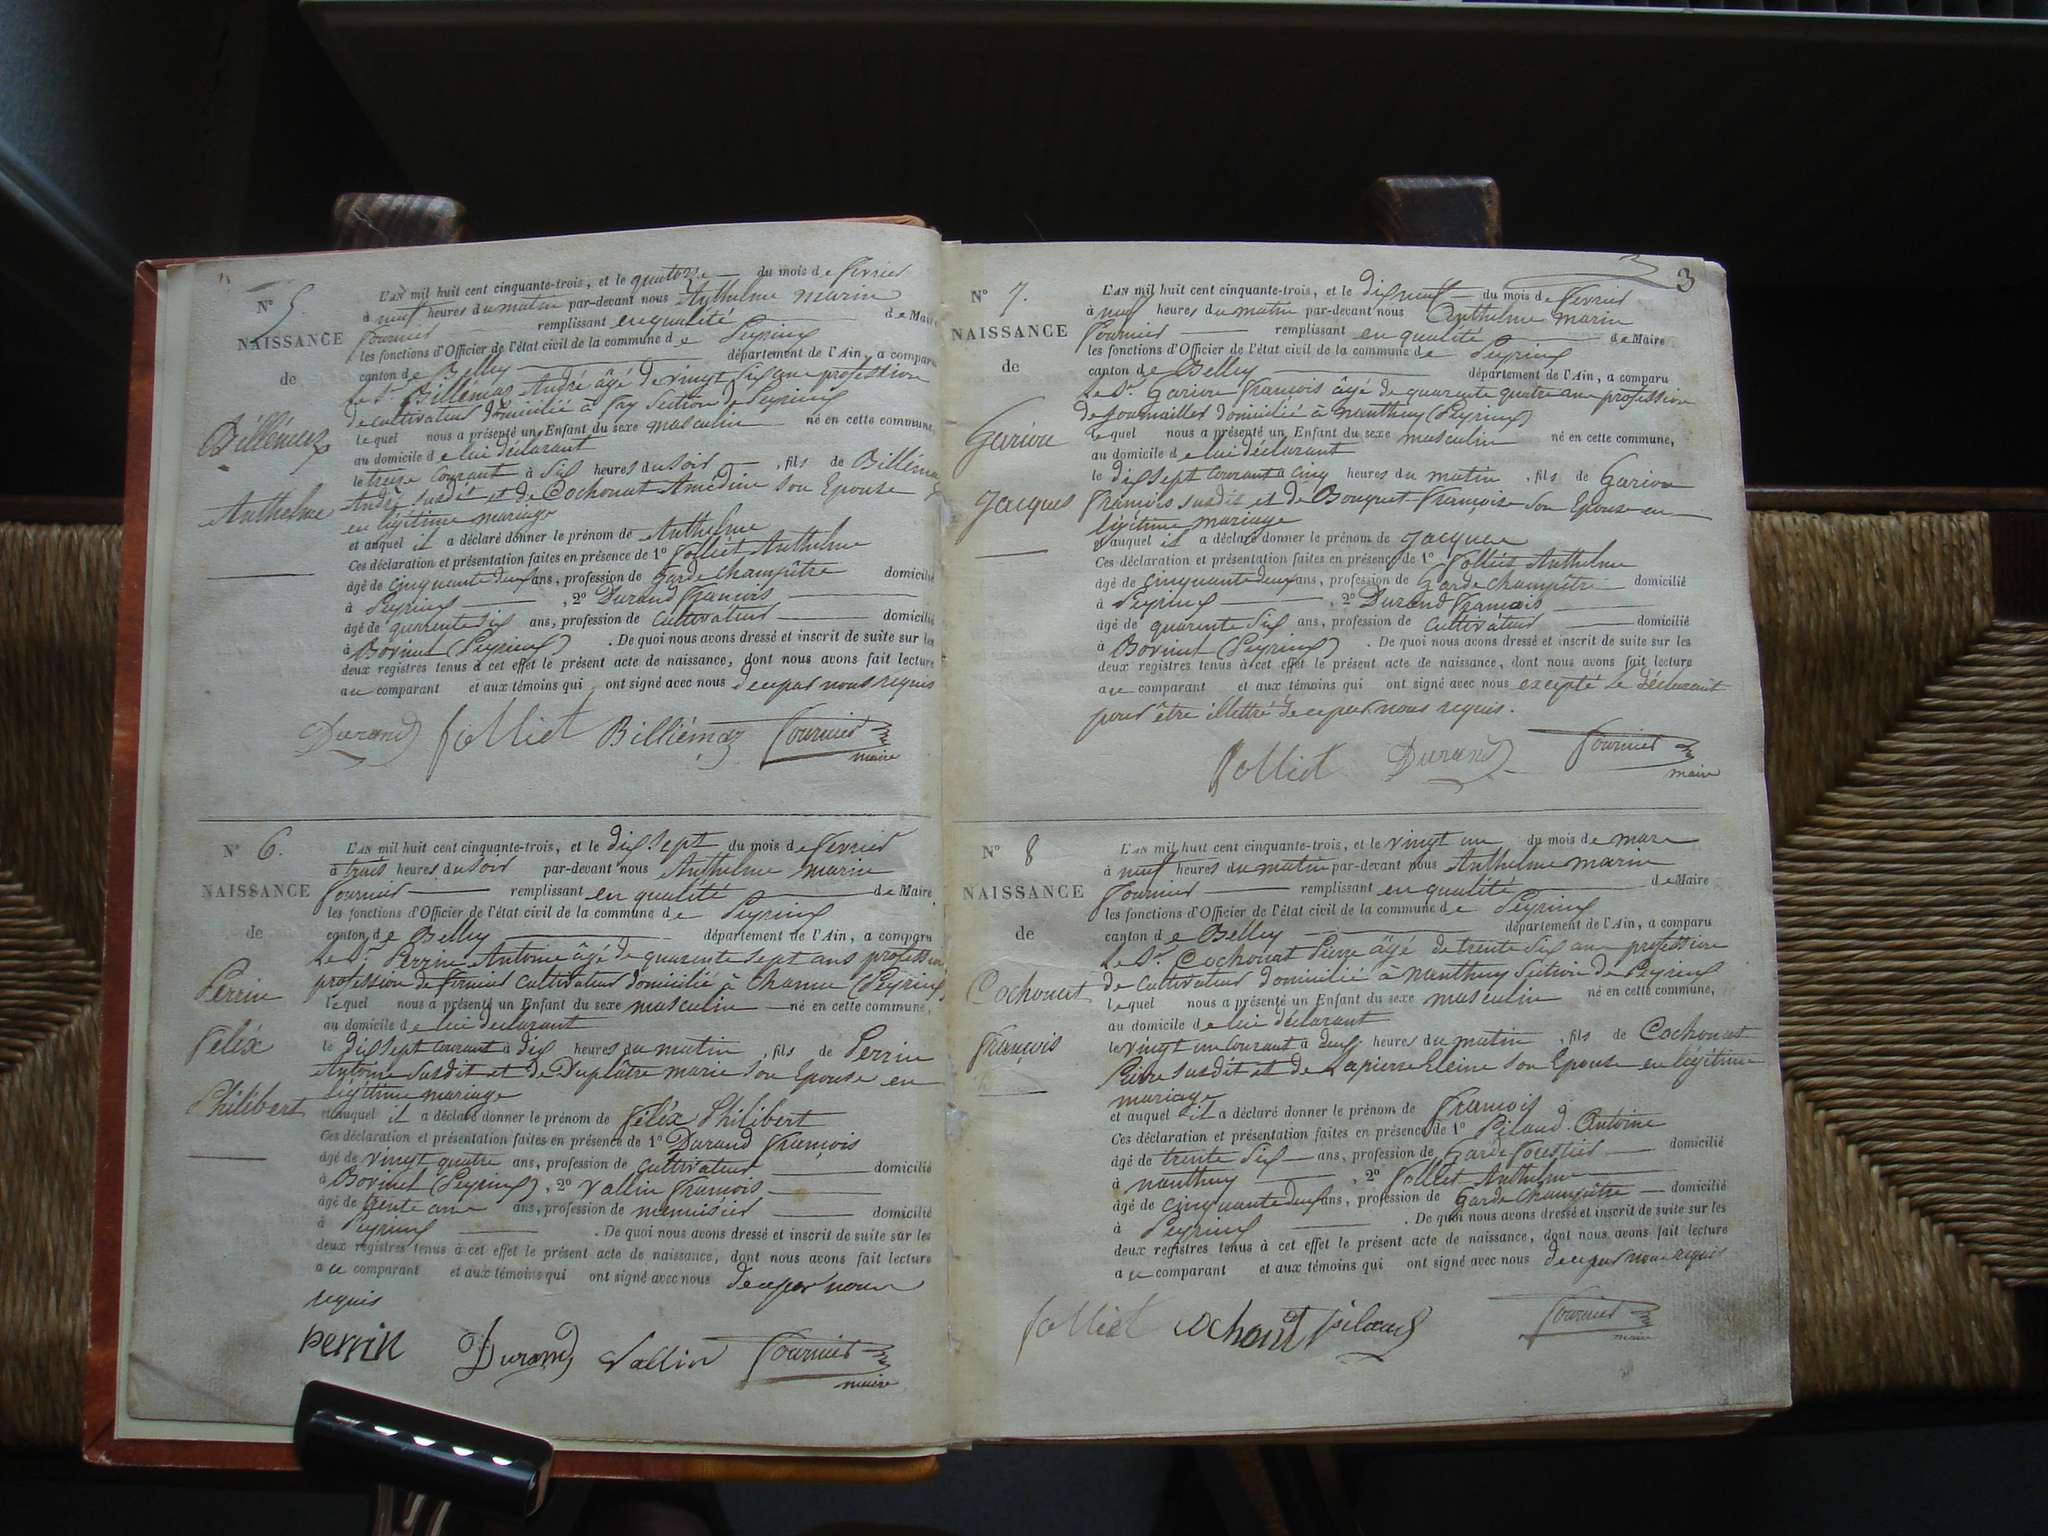 N° 5
NAISSANCE
de
Billiémaz
Anthelme
L'AN mil huit cent cinquante-trois, et le quatorze du mois de février
à neuf heures du matin par-devant nous Anthelme marin
Fournier remplissant en qualité de Maire
les fonctions d'Officier de l'état civil de la commune de Peyrieux
canton de Belley département de l'Ain, a comparu
le Sr. Billiémaz André âgé de vingt six ans profession
de cultivateur domicilié à Fay Section de Peyrieux
lequel nous a présenté un Enfant du sexe masculin né en cette commune,
au domicile de lui déclarant
le treize courant à six heures du soir, fils de Billiémaz
André susdit et de Cochonat Amédine son Epouse
en légitime mariage
et auquel il a déclaré donner le prénom de Anthelme
Ces déclaration et présentation faites en présence de 1° Folliet Anthelme
âgé de cinquante deux ans, profession de Garde champêtre domicilié
à Peyrieux, 2° Durand François
âgé de quarente six ans, profession de cultivateur domicilié
à Bovinet (Peyrieux). De quoi nous avons dressé et inscrit de suite sur les
deux registres tenus à cet effet le présent acte de naissance, dont nous avons fait lecture
au comparant et aux témoins qui ont signé avec nous de ce par nous requis
Durand folliet Billiémaz Fournier
maire
N° 6.
NAISSANCE
de
Perrin
Félix
Philibert
L'AN mil huit cent cinquante-trois, et le dix sept du mois de février
à trois heures du soir par-devant nous Anthelme marin
Fournier remplissant en qualité de Maire
les fonctions d'Officier de l'état civil de la commune de Peyrieux
canton de Belley département de l'Ain, a comparu
le Sr. Perrin Antoine âgé de quarente sept ans profession
profession de fermier cultivateur domicilié à (Peyrieux)
lequel nous a présenté un Enfant du sexe masculin né en cette commune,
au domicile de lui déclarant
le dix sept courant à dix heures du matin, fils de Perrin
Antoine susdit et de Duplâtre marie son Epouse en
légitime mariage
et auquel il a déclaré donner le prénom de Félix Philibert
Ces déclaration et présentation faites en présence de 1° Durand François
âgé de vingt quatre ans, profession de cultivateur domicilié
à Bovinet (Peyrieux), 2° Vallin François
âgé de trente ans, profession de menuisier domicilié
à Peyrieux. De quoi nous avons dressé et inscrit de suite sur les
deux registres tenus à cet effet le présent acte de naissance, dont nous avons fait lecture
au comparant et aux témoins qui ont signé avec nous de ce par nous
requis
perrin Durand Vallin Fournier
maire
3
N° 7.
NAISSANCE
de
Gariou
Jacques
L'AN mil huit cent cinquante-trois, et le dix neuf du mois de février
à neuf heures du matin par-devant nous Anthelme marin
Fournier remplissant en qualité de Maire
les fonctions d'Officier de l'état civil de la commune de Peyrieux
canton de Belley département de l'Ain, a comparu
le Sr. Gariou François âgé de quarente quatre ans profession
de journaillier domicilié à nanthuy (Peyrieux)
lequel nous a présenté un Enfant du sexe masculin né en cette commune,
au domicile de lui déclarant
le dix sept courant à cinq heures du matin, fils de Gariou
François susdit et de Bouquet Françoise son Epouse en
légitime mariage
et auquel il a déclaré donner le prénom de Jacques
Ces déclaration et présentation faites en présence de 1° Folliet Anthelme
âgé de cinquante deux ans, profession de Garde champêtre domicilié
à Peyrieux, 2° Durand François
âgé de quarente six ans, profession de cultivateur domicilié
à Bovinet (Peyrieux). De quoi nous avons dressé et inscrit de suite sur les
deux registres tenus à cet effet le présent acte de naissance, dont nous avons fait lecture
au comparant et aux témoins qui ont signé avec nous excepté le déclarant
pour être illettré de ce par nous requis.
folliet Durand Fournier
maire
N° 8
NAISSANCE
de
Cochonat
François
L'AN mil huit cent cinquante-trois, et le vingt un du mois de mars
à neuf heures du matin par-devant nous Anthelme marin
Fournier remplissant en qualité de Maire
les fonctions d'Officier de l'état civil de la commune de Peyrieux
canton de Belley département de l'Ain, a comparu
le Sr. Cochonat Pierre âgé de trente six ans profession
de cultivateur domicilié à nanthuy Section de Peyrieux
lequel nous a présenté un Enfant du sexe masculin né en cette commune,
au domicile de lui déclarant
le vingt un courant à deux heures du matin, fils de Cochonat
Pierre susdit et de Lapierre Eleine son Epouse en légitime
mariage
et auquel il a déclaré donner le prénom de François
Ces déclaration et présentation faites en présence de 1° Pilaud Antoine
âgé de trente six ans, profession de Garde forestier domicilié
à nanthuy, 2° Folliet Anthelme
âgé de cinquante deux ans, profession de Garde champêtre domicilié
à Peyrieux. De quoi nous avons dressé et inscrit de suite sur les
deux registres tenus à cet effet le présent acte de naissance, dont nous avons fait lecture
au comparant et aux témoins qui ont signé avec nous de ce par nous requis
folliet cochonat pilaud Fournier
maire